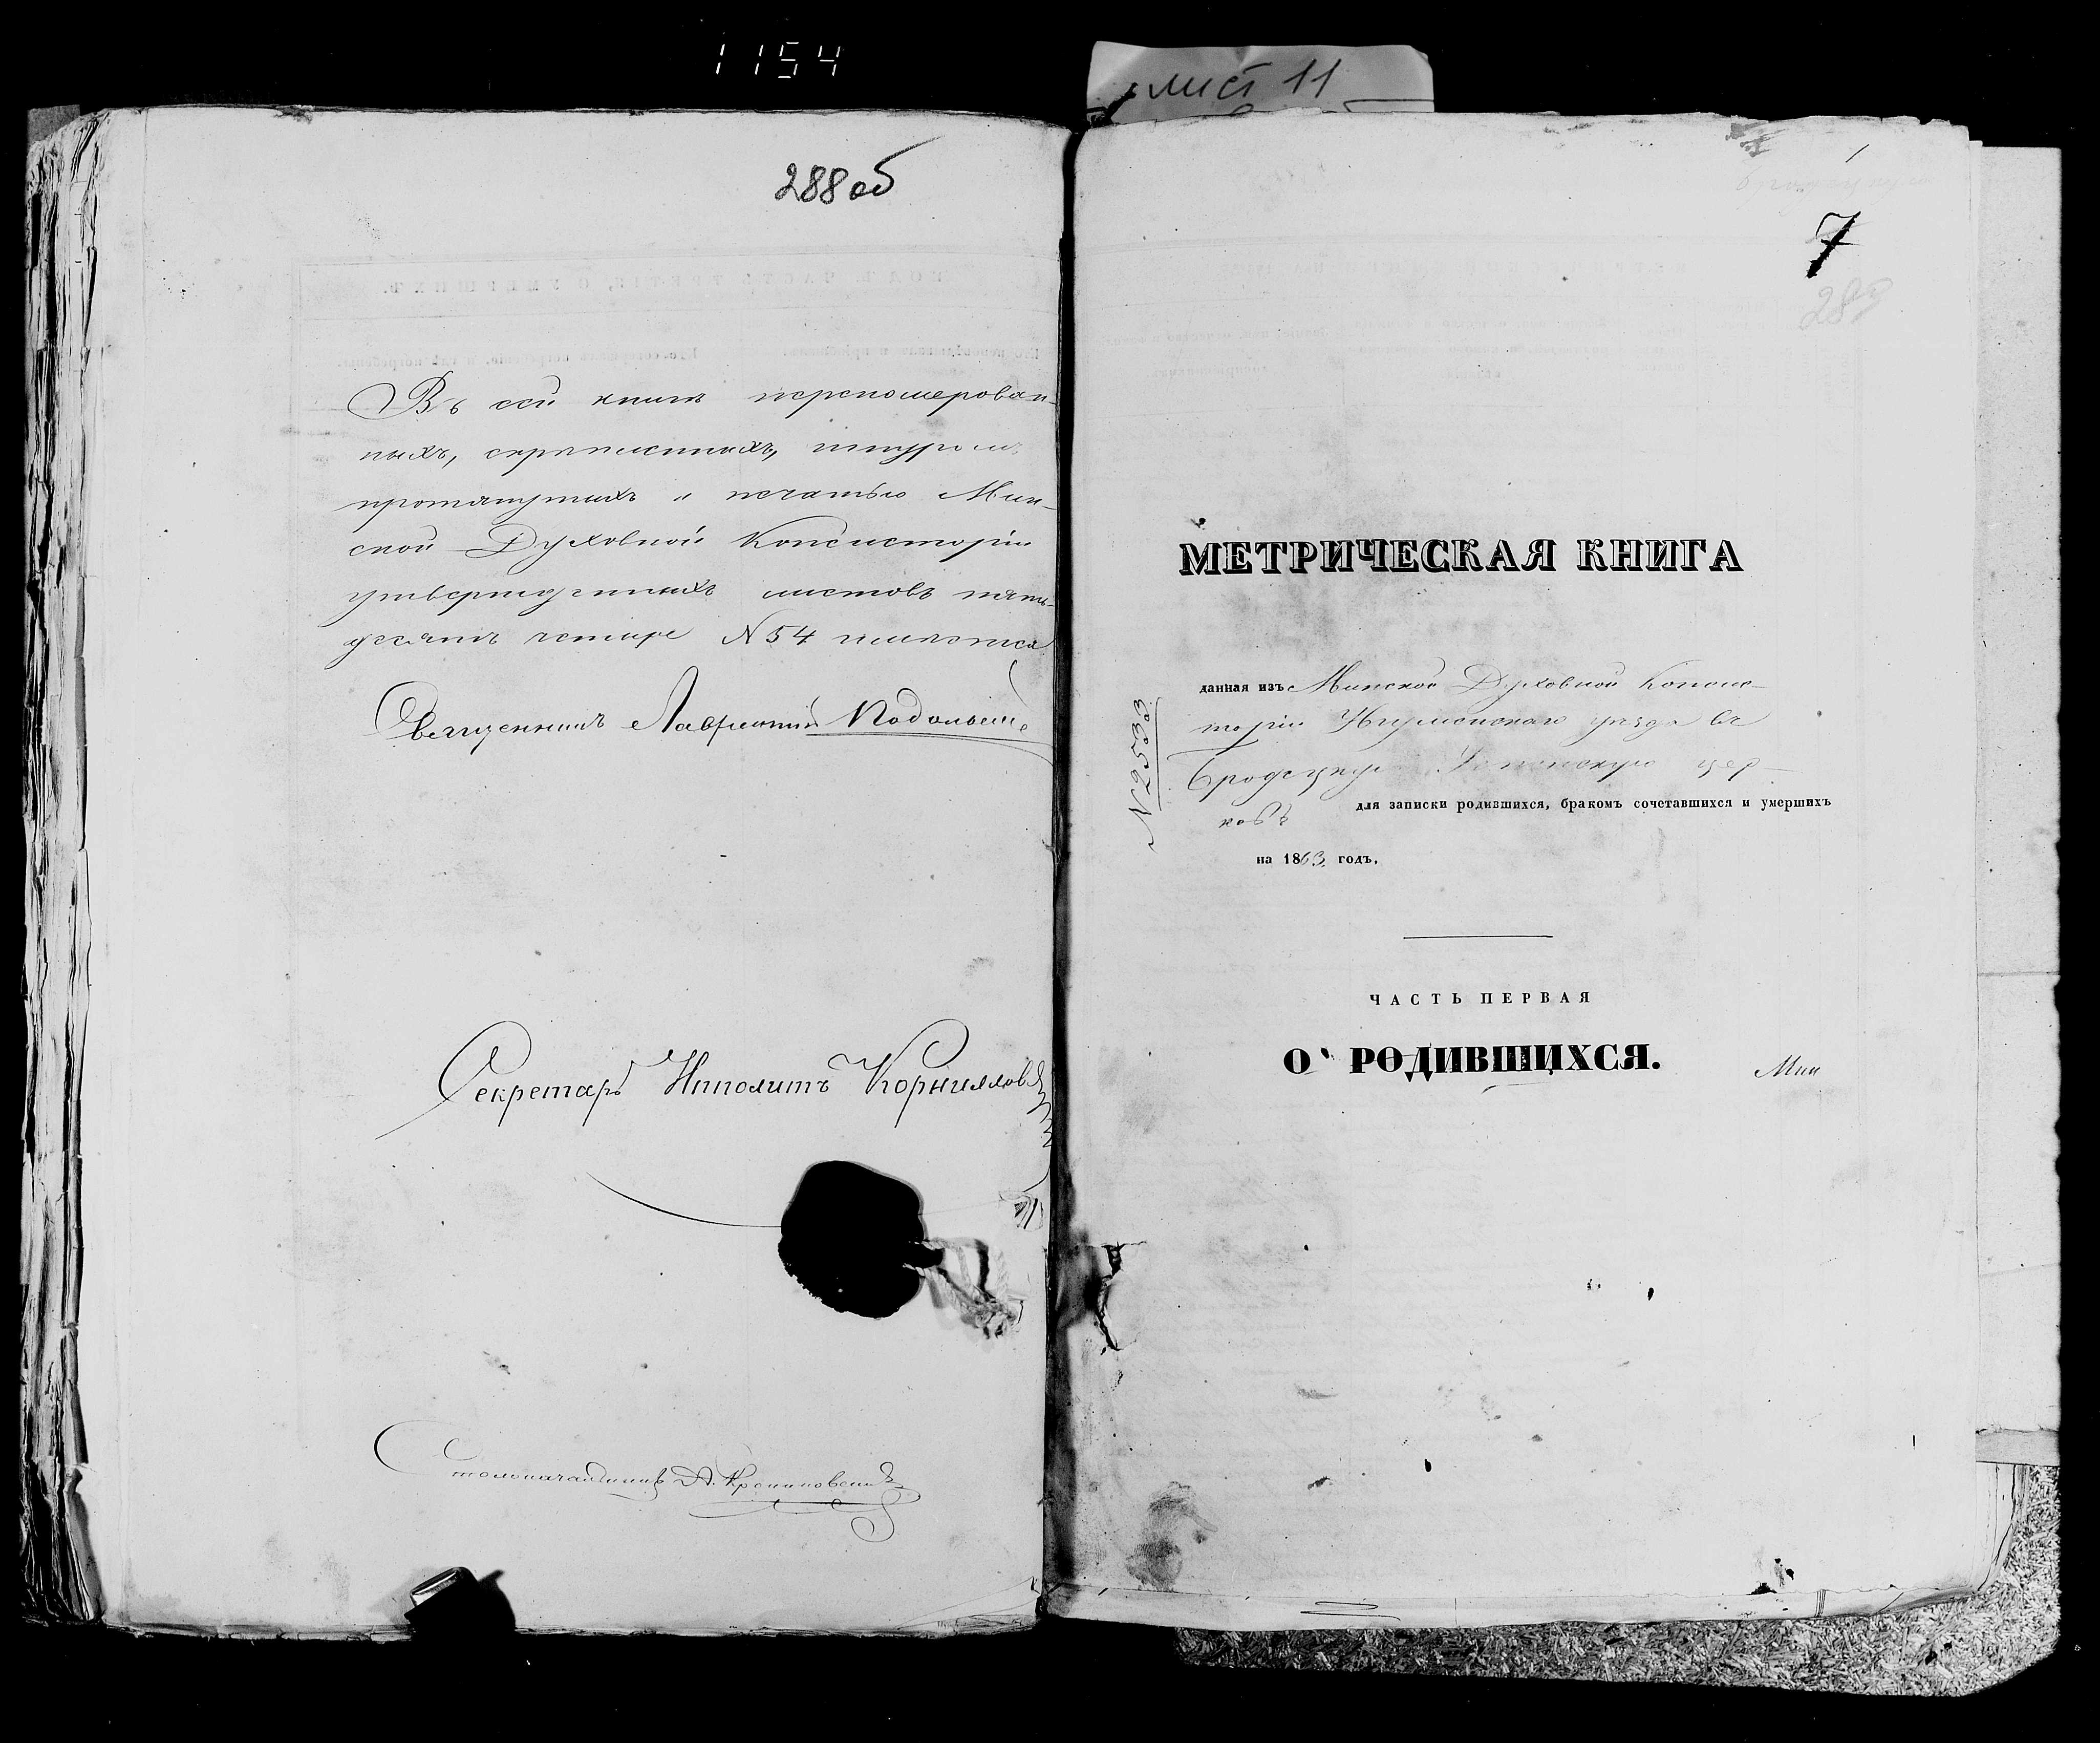 1154
лист 11
288 об
Въ сей книгѣ перенумерован-
ныхъ, скрѣпленныхъ, шнуромъ
протянутыхъ и печатью Мин-
ской Духовной Консисторіи
утвержденныхъ листовъ пять-
десятъ четыре N 54 имѣется
Священникъ Лаврентій Подольскій
Секретарь Ипполитъ Корнилловъ
Столоначальникъ А.
7
289
МЕТРИЧЕСКАЯ КНИГА
данная изъ Минской Духовной Консис-
торіи Игуменскаго уѣзда въ
Бродецкую Успенскую цер-
ковь для записки родившихся, бракомъ сочетавшихся и умершихъ
на 1863 годъ.
N 2533
ЧАСТЬ ПЕРВАЯ
О РОДИВШИХСЯ.
Мин